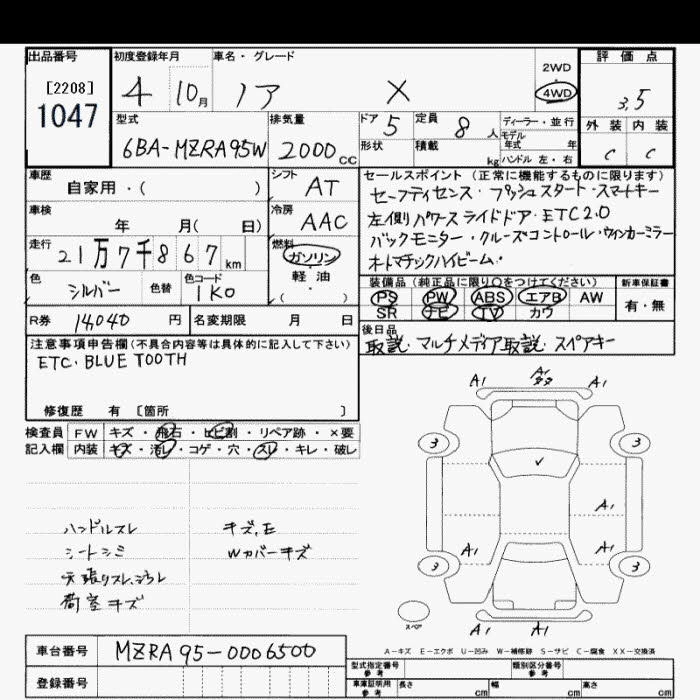 出品番号
[2208]
1047
初度登録年月
4 10月
車名・グレード
ノア X
2WD
4WD
評価点
3.5
外装 内装
C C
型式
6BA-MZRA95W
排気量
2000 CC
ドア 5
定員 8 人
形状
積載 kg
ディーラー・並行
モデル年式 年
ハンドル 左・右
車歴
自家用・( )
シフト AT
車検
年 月( 日)
冷房 AAC
走行
21万7千867 km
燃料
ガソリン
軽・油
( )
色 シルバー
色替
色コード 1K0
R券 14,040 円
名変期限 月 日
セールスポイント (正常に機能するものに限ります)
セーフティセンス・プッシュスタート・スマートキー
左側パワースライドドア・ETC2.0
バックモニター・クルーズコントロール・ウィンカーミラー
オートマチックハイビーム・
装備品 (純正品に限り○をつけてください)
PS PW ABS エアB AW
SR ナビ TV カワ
新車保証書
有・無
後日品
取説・マルチメディア取説・スペアキー
注意事項申告欄(不具合内容等は具体的に記入して下さい)
ETC・BLUE TOOTH
修復歴 有 〔箇所 〕
検査員記入欄
FW キズ・飛石・ヒビ割・リペア跡・×要
内装 キズ・汚レ・コゲ・穴・スレ・キレ・破レ
ハンドルスレ
シートシミ
天張りスレ、ヨゴレ
荷室キズ
キズ,E
Wカバーキズ
A1 A1 A1
3 3
A1
A1 A1
3 3
A1 A1
スペア
A-キズ E-エクボ U-凹み W-補修跡 S-サビ C-腐食 XX-交換済
車台番号 MZRA95-0006500
登録番号
型式指定番号 参考
類別区分番号 参考
車庫証明用 参考
長さ cm 幅 cm 高さ cm